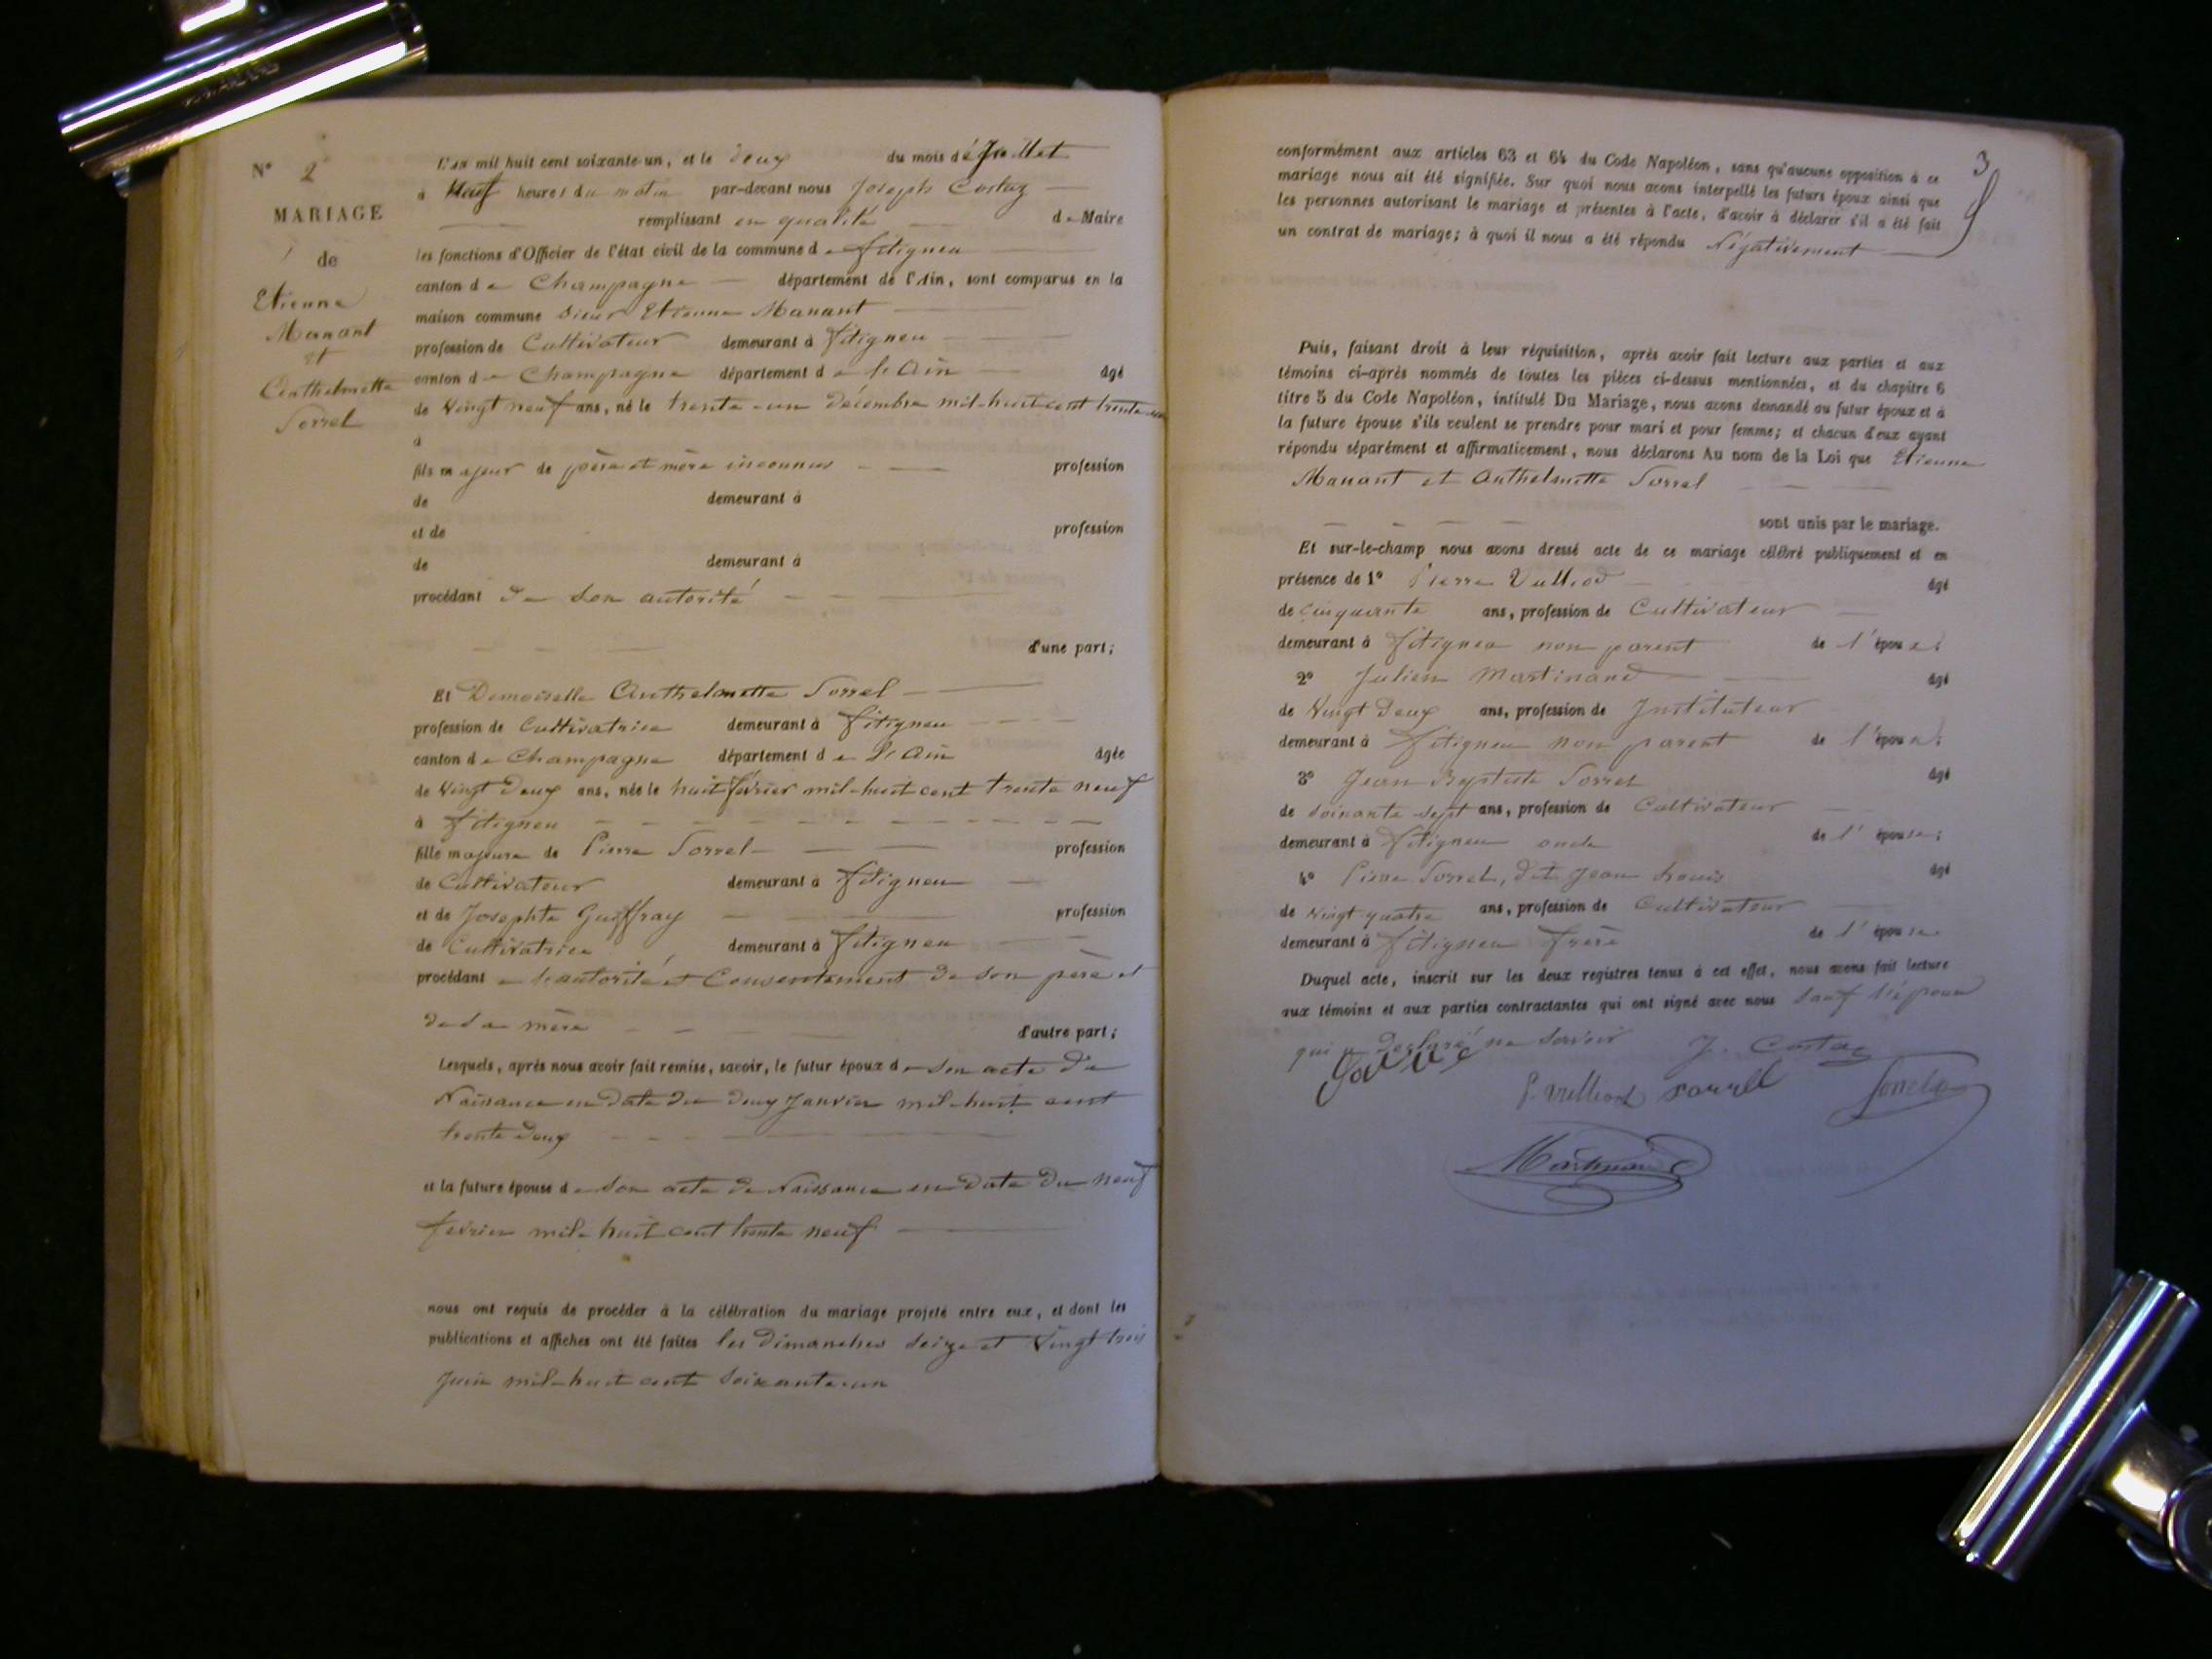 N° 2
MARIAGE
de
Etienne
Manant
et
Anthelmette
Sorrel
L'an mil huit cent soixante-un, et le deux du mois de Juillet
à Neuf heures du matin par-devant nous Joseph Costaz
remplissant en qualité de Maire
les fonctions d'Officier de l'état civil de la commune de fitigneu
canton de Champagne département de l'Ain, sont comparus en la
maison commune Sieur Etienne Manant
profession de Cultivateur demeurant à fitigneu
canton de Champagne département de l'Ain âgé
de Vingt neuf ans, né le trente-un décembre mil-huit cent trente-un
à
fils majeur de père et mère inconnus profession
de demeurant à
et de profession
de demeurant à
procédant de son autorité
d'une part;
Et Demoiselle Anthelmette Sorrel
profession de Cultivatrice demeurant à fitigneu
canton de Champagne département de l'Ain âgée
de Vingt Deux ans, née le huit février mil-huit cent trente neuf
à fitigneu
fille majeure de Pierre Sorrel profession
de Cultivateur demeurant à fitigneu
et de Josephte Guiffray profession
de Cultivatrice demeurant à fitigneu
procédant de l'autorité et Consentement de son père et
de sa mère d'autre part;
Lesquels, après nous avoir fait remise, savoir, le futur époux de son acte de
Naissance en date du deux Janvier mil-huit cent
trente deux
et la future épouse de son acte de Naissance en date du neuf
février mil-huit cent trente neuf
nous ont requis de procéder à la célébration du mariage projeté entre eux, et dont les
publications et affiches ont été faites les Dimanches seize et Vingt trois
Juin mil-huit cent soixante-un
3
conformément aux articles 63 et 64 du Code Napoléon, sans qu'aucune opposition à ce
mariage nous ait été signifiée. Sur quoi nous avons interpellé les futurs époux ainsi que
les personnes autorisant le mariage et présentes à l'acte, d'avoir à déclarer s'il a été fait
un contrat de mariage; à quoi il nous a été répondu Négativement
Puis, faisant droit à leur réquisition, après avoir fait lecture aux parties et aux
témoins ci-après nommés de toutes les pièces ci-dessus mentionnées, et du chapitre 6
titre 5 du Code Napoléon, intitulé Du Mariage, nous avons demandé au futur époux et à
la future épouse s'ils veulent se prendre pour mari et pour femme; et chacun d'eux ayant
répondu séparément et affirmativement, nous déclarons Au nom de la Loi que Etienne
Manant et Anthelmette Sorrel
sont unis par le mariage.
Et sur-le-champ nous avons dressé acte de ce mariage célébré publiquement et en
présence de 1° Pierre Vulliod âgé
de cinquante ans, profession de Cultivateur
demeurant à fitigneu non parent de l'époux;
2° Julien Martinand âgé
de Vingt Deux ans, profession de Instituteur
demeurant à fitigneu non parent de l'époux;
3° Jean Baptiste Sorrel âgé
de soixante sept ans, profession de Cultivateur
demeurant à fitigneu oncle de l'épouse;
4° Pierre Sorrel, dit Jean Louis âgé
de vingt quatre ans, profession de Cultivateur
demeurant à fitigneu frère de l'épouse
Duquel acte, inscrit sur les deux registres tenus à cet effet, nous avons fait lecture
aux témoins et aux parties contractantes qui ont signé avec nous sauf l'époux
qui a Déclaré ne savoir J. Costaz
P. Vulliod Sorrel
Martinand